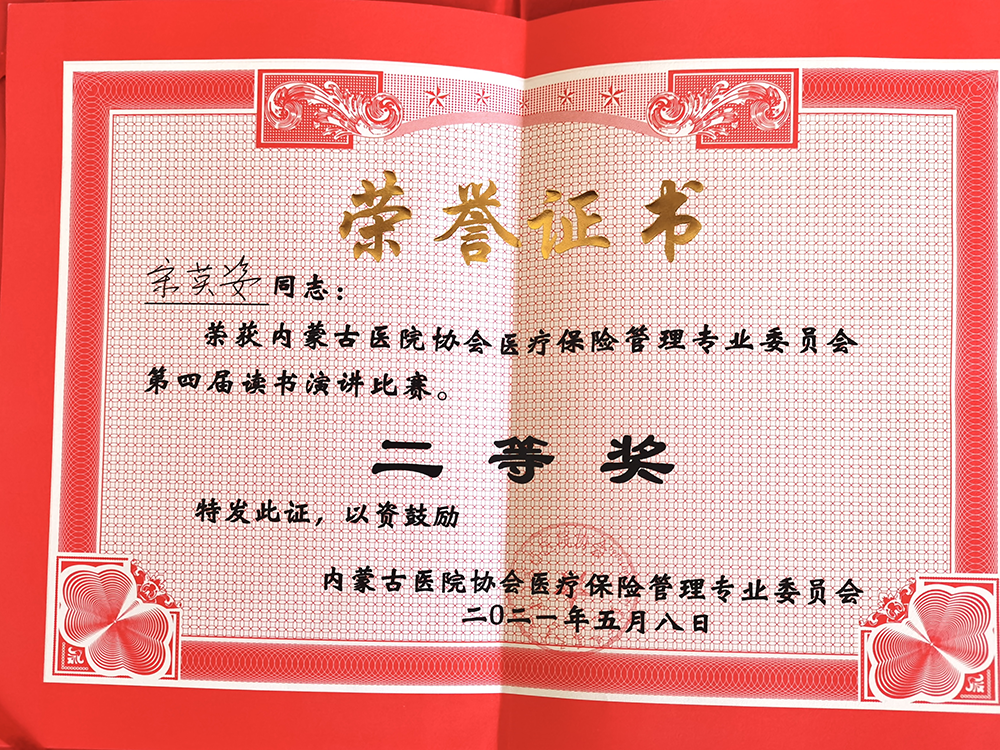 荣誉证书
宋英姿同志：
荣获内蒙古医院协会医疗保险管理专业委员会
第四届读书演讲比赛。
二等奖
特发此证，以资鼓励
内蒙古医院协会医疗保险管理专业委员会
二〇二一年五月八日